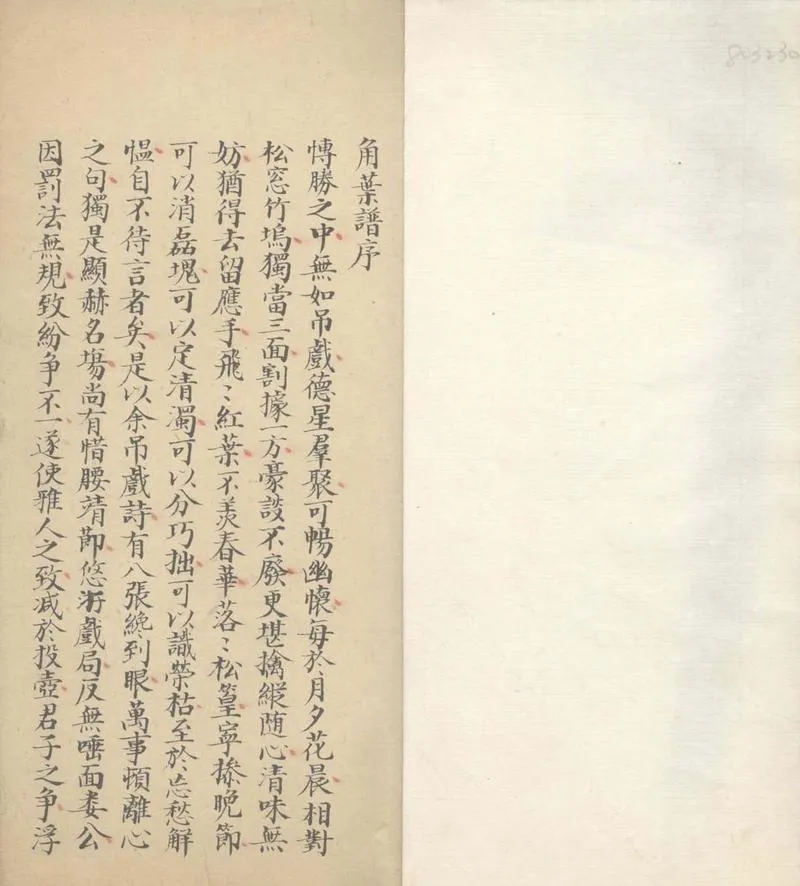 角葉譜序
慱勝之中無如吊戲德星羣聚可暢幽懷每於月夕花晨相對
松窓竹塢獨當三面割據一方豪談不廢更堪擒縱随心清味無
妨猶得去留應手飛〻紅葉不羡春華落〻松篁寧摻晚節
可以消磊塊可以定清濁可以分巧拙可以識榮枯至於忘愁解
愠自不待言者矣是以余吊戲詩有八張纔到眼萬事頓離心
之句獨是顯赫名塲尚有惜腰靖節悠游戲局反無唾面婁公
因罰法無規致紛争不一遂使雅人之致减於投壺君子之争浮
803230